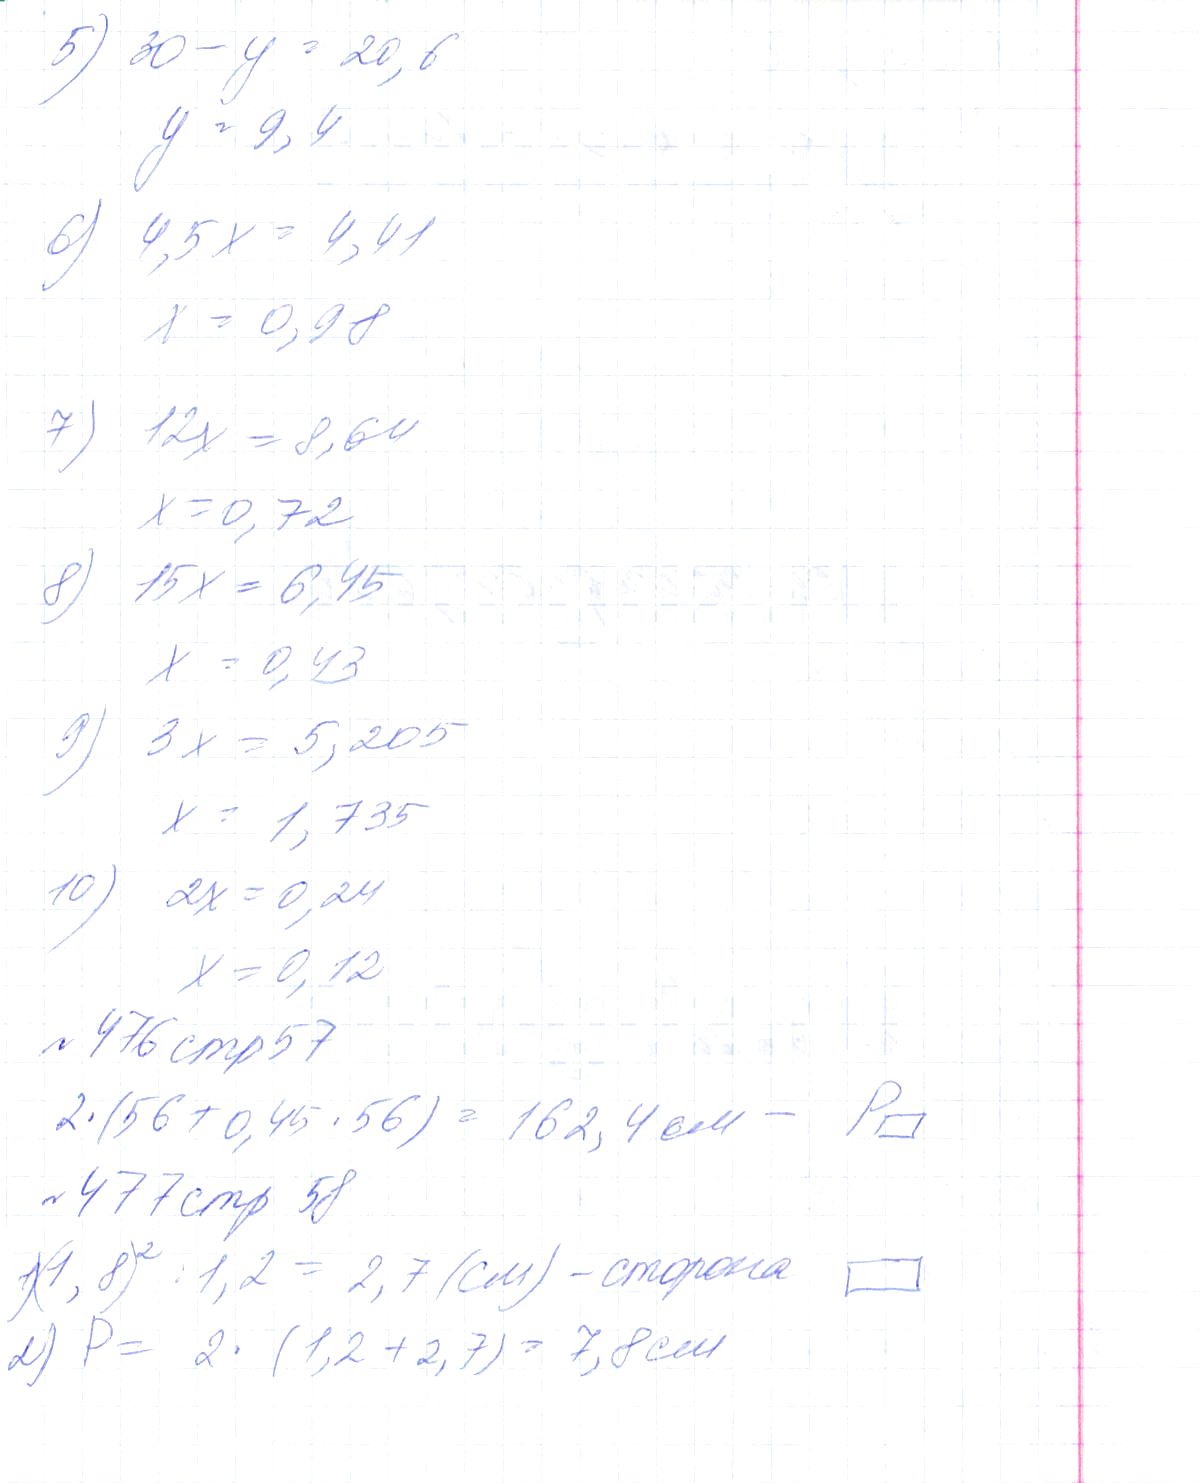 5) 30 - y = 20,6
y = 9,4
6) 4,5x = 4,41
x = 0,98
7) 12x = 8,64
x = 0,72
8) 15x = 6,45
x = 0,43
9) 3x = 5,205
x = 1,735
10) 2x = 0,24
x = 0,12
~476 стр 57
2·(56+0,45·56) = 162,4 см - P▭
~477 стр 58
1)(1,8)² : 1,2 = 2,7 (см) - сторона ▭
2) P = 2·(1,2+2,7) = 7,8 см